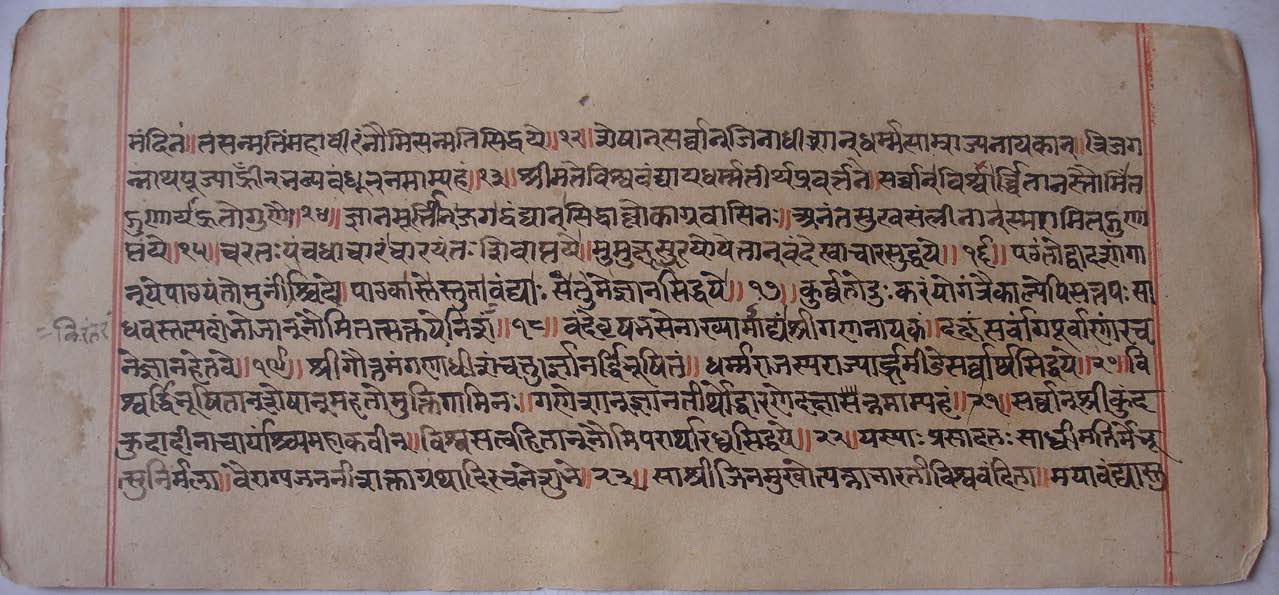 मंदितं॥ तं सन्मतिं महावीरं नौमि सन्मतिसिद्धये॥१२॥ शेषान् सर्वान् जिनाधीशान् धर्म्मसाम्राज्यनायकान्॥ त्रिजग
न्नाथपूज्यांह्रीन् भव्यबंधून् नमाम्यहं॥१३॥ श्रीमते विश्ववंद्याय धर्म्मतीर्थप्रवर्त्तने सर्व्वान् विश्वार्च्चितान् स्तौमि त
द्गुणाय
ज्ञानमूर्त्तीन् जगद्वंद्यान् सिद्धान् लोकाग्रवासिनः॥ अनंतसुखसंलीनान् स्मरामि तद्गुणा
प्तये॥१५॥ चरतः पंचधाचारं चारयंतः शिवाप्तये॥ मुमुक्षून् सूरयो ये तान् वंदे स्वाचारसुद्धये॥१६॥ पठंतो द्वादशांगा
न् ये पाठयंतो मुनीश्चिदे॥ पाठकास्ते स्तुता वंद्याः संतु मे ज्ञानसिद्धये॥१७॥ कुर्व्वंतो दुःकरं योगं त्रैकाल्येपि सत्तपः सा
धवस्तत्पदांभोजान् नौमि तत्सक्तये निशं॥१८॥ वंदे वृषभसेनाख्यामाद्यं श्रीगणनायकं॥ दक्षं सर्वांगपूर्वाणां रच
ने ज्ञानहेतवे॥१९॥ श्रीगौतमं गणाधीशं चतुर्ज्ञानर्द्धिभूषितं॥ धर्म्मराजस्य राज्यार्हमीडे सर्व्वार्थसिद्धये॥२०॥ वि
श्वर्द्धिभूषितान् शेषान् महतो मुक्तिगामिनः॥ गणेशान् ज्ञानतीर्थोद्धारणे दक्षान् नमाम्यहं॥२१॥ सर्व्वान् श्रीकुंद
कुंदादीनाचार्यांश्च महाकवीन्॥ विश्वसत्वहितान् नौमि परार्थारब्धसिद्धये॥२२॥ यस्याः प्रसादतः साध्वी मतिर्मेभू
त्सुनिर्मला॥ वैराग्यजननी शक्ता ग्रंथादिरचने शुभे॥२३॥ सा श्रीजिनमुखोत्पन्ना भारती विश्ववंदिता॥ मया वंद्या स्तु